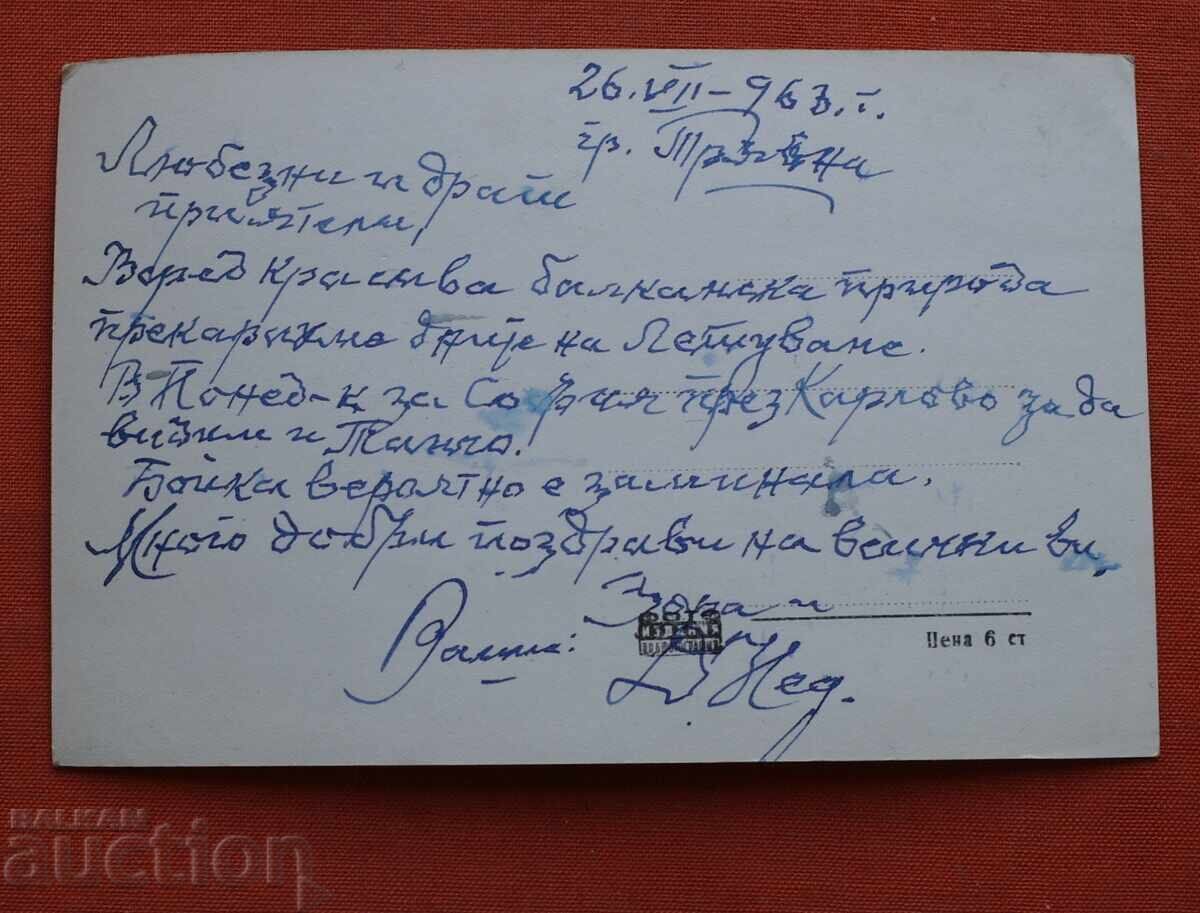 26.VII-963.г.
гр. Трявна
Любезни и драги
приятели,
Веред красива балканска природа
прекарахме дните на летуване.
В Понед-к за София през Карлово за да
видим и Танчо.
Бойка вероятно е заминала.
Много добри поздрави на всички ви,
и
Ваши:
Нед.
Цена 6 ст
BALKAN
auction